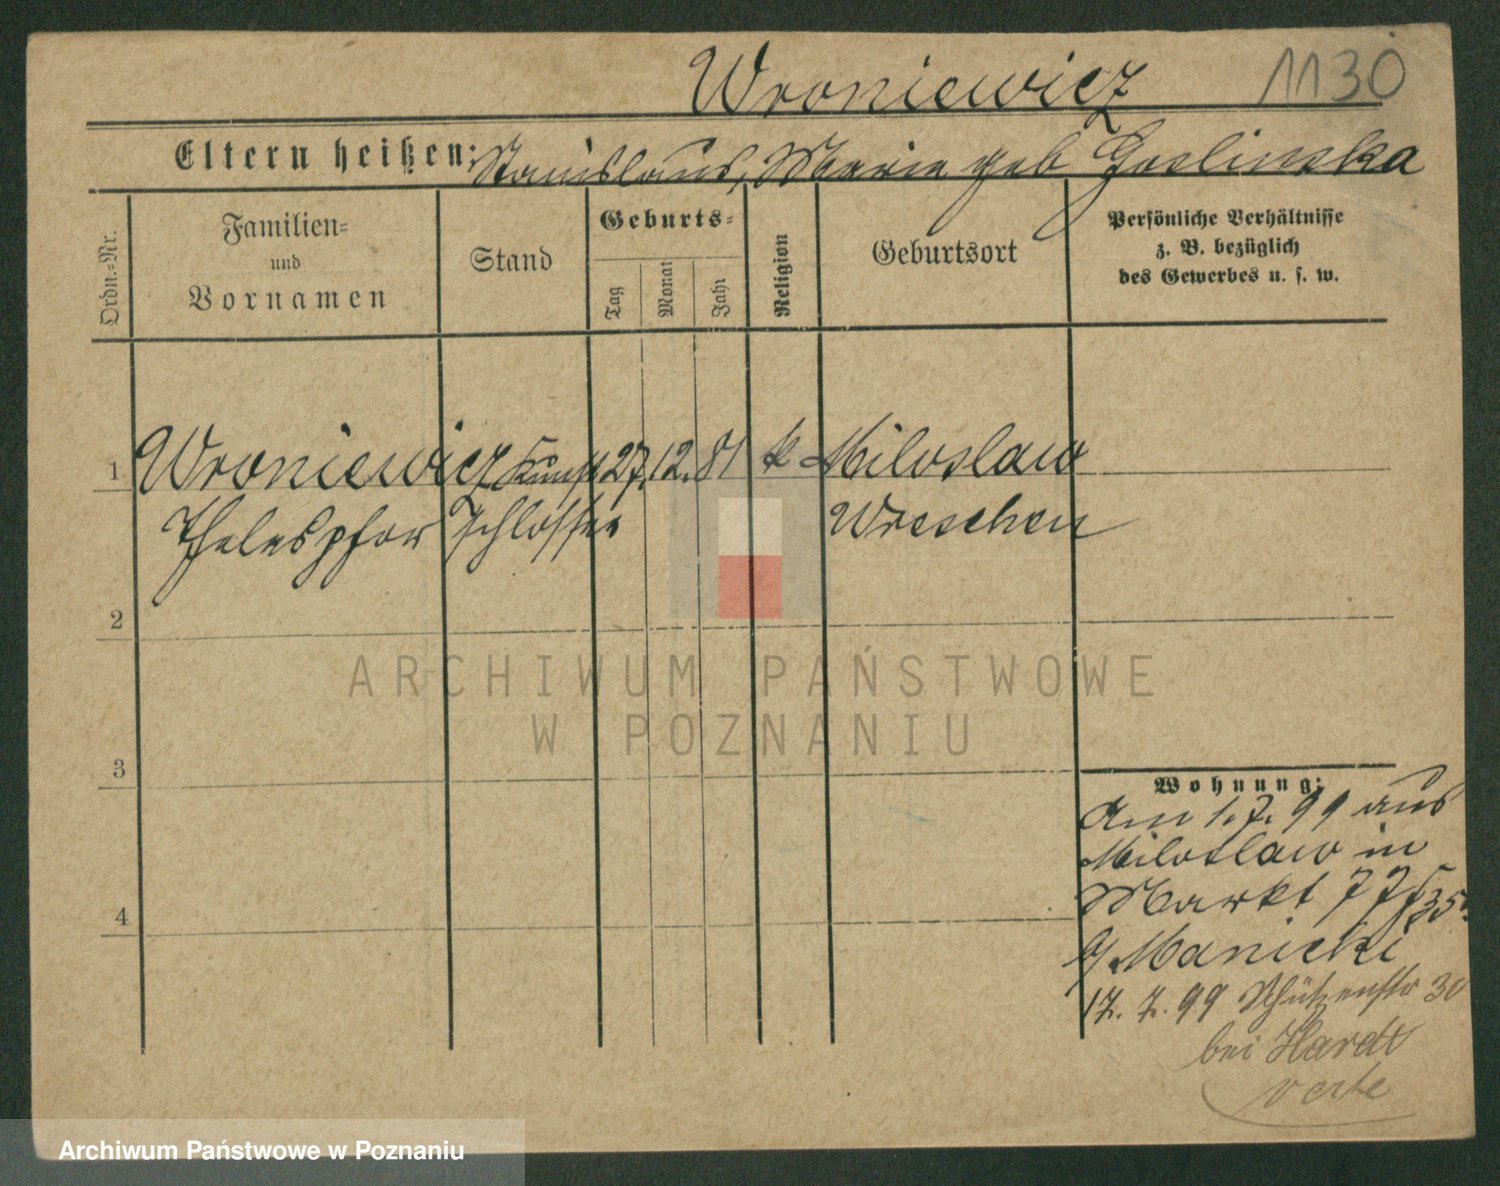 Wroniewicz 1130
Eltern heißen: Stanislaus, Marie geb Goslinska
Ordn.=Nr.
Familien=
und
Vornamen
Stand
Geburts=
Tag
Monat
Jahr
Religion
Geburtsort
Persönliche Verhältnisse
z. B. bezüglich
des Gewerbes u. s. w.
1 Wroniewicz Kunst 27. 12. 81 k Miloslaw
Thelespfor Schlosser Wreschen
2
3
4
Wohnung:
Am 1. 7. 99 aus
Miloslaw in
Markt 77
Manicki
17. 7. 99 Schützenstr 30
bei Hardt
verte
ARCHIWUM PAŃSTWOWE
W POZNANIU
Archiwum Państwowe w Poznaniu